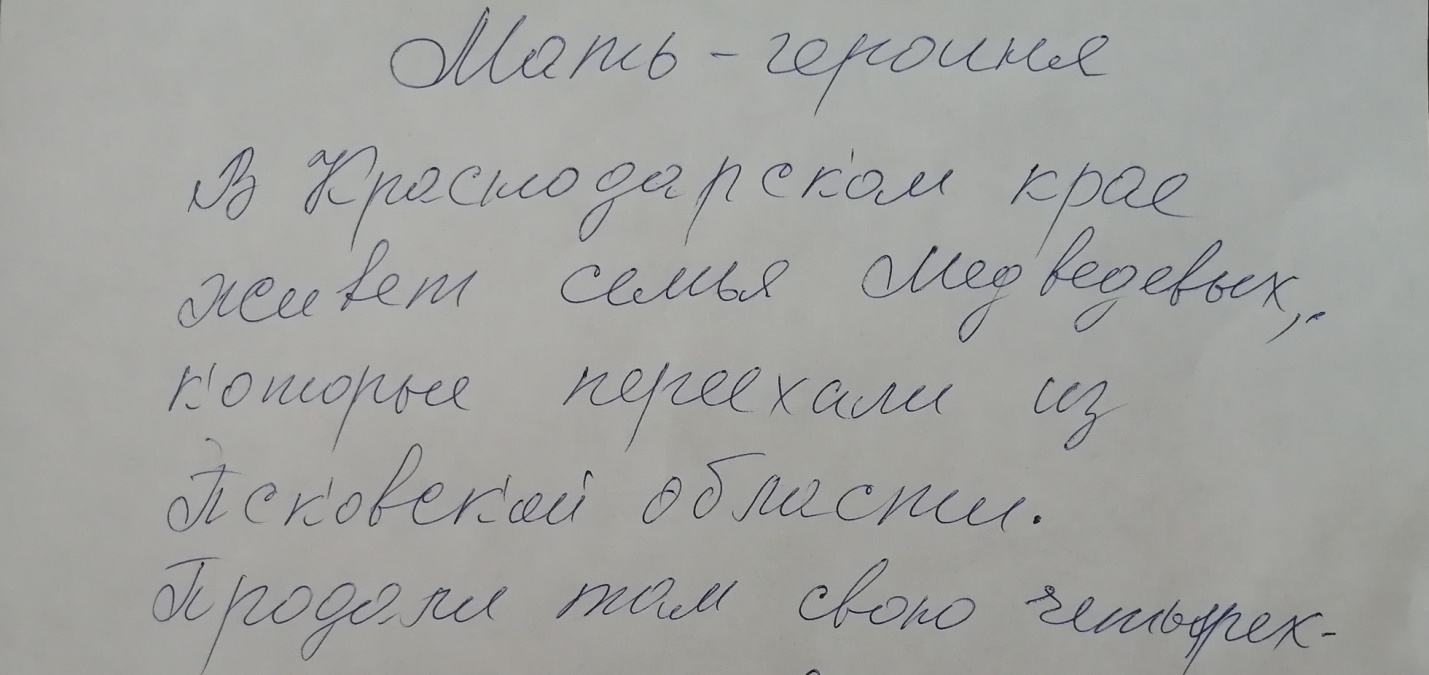 Мать - героиня
В Краснодарском крае
живет семья Медведевых,
которые переехали из
Псковской области.
Продали там свою четырех-